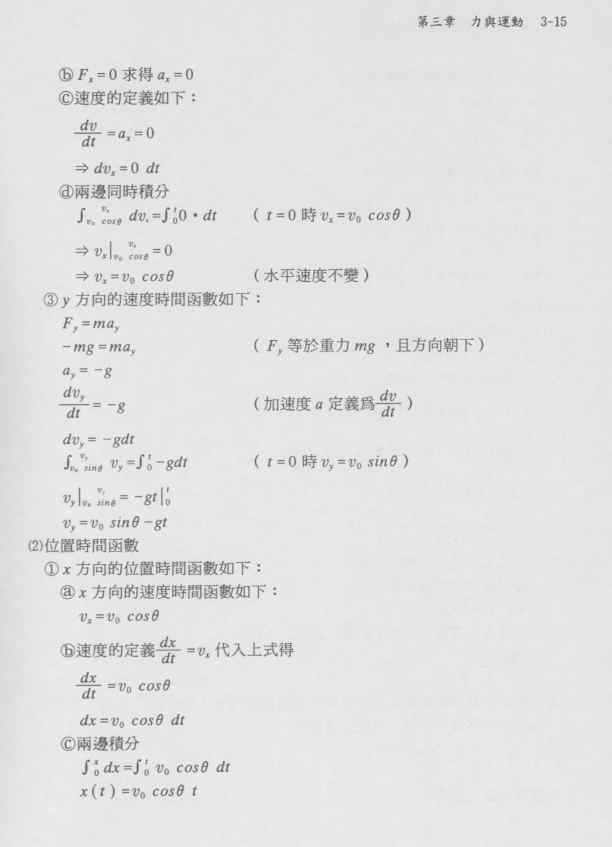 第三章 力與運動 3-15
ⓑ Fₓ=0 求得 aₓ=0
Ⓒ速度的定義如下：
dv/dt =aₓ=0
⇒ dvₓ=0 dt
ⓓ兩邊同時積分
∫_{v₀ cosθ}^{vₓ} dvₓ=∫₀ᵗ0・dt （t=0 時 vₓ=v₀ cosθ）
⇒ vₓ|_{v₀ cosθ}^{vₓ} =0
⇒ vₓ=v₀ cosθ （水平速度不變）
③ y 方向的速度時間函數如下：
F_y=ma_y
-mg=ma_y （F_y 等於重力 mg，且方向朝下）
a_y= -g
dv_y/dt = -g （加速度 a 定義爲 dv/dt）
dv_y= -gdt
∫_{v₀ sinθ}^{v_y} v_y=∫₀ᵗ -gdt （t=0 時 v_y=v₀ sinθ）
v_y|_{v₀ sinθ}^{v_y} = -gt|₀ᵗ
v_y=v₀ sinθ-gt
⑵位置時間函數
① x 方向的位置時間函數如下：
ⓐ x 方向的速度時間函數如下：
vₓ=v₀ cosθ
ⓑ速度的定義 dx/dt =vₓ 代入上式得
dx/dt =v₀ cosθ
dx=v₀ cosθ dt
Ⓒ兩邊積分
∫₀ˣ dx=∫₀ᵗ v₀ cosθ dt
x(t)=v₀ cosθ t